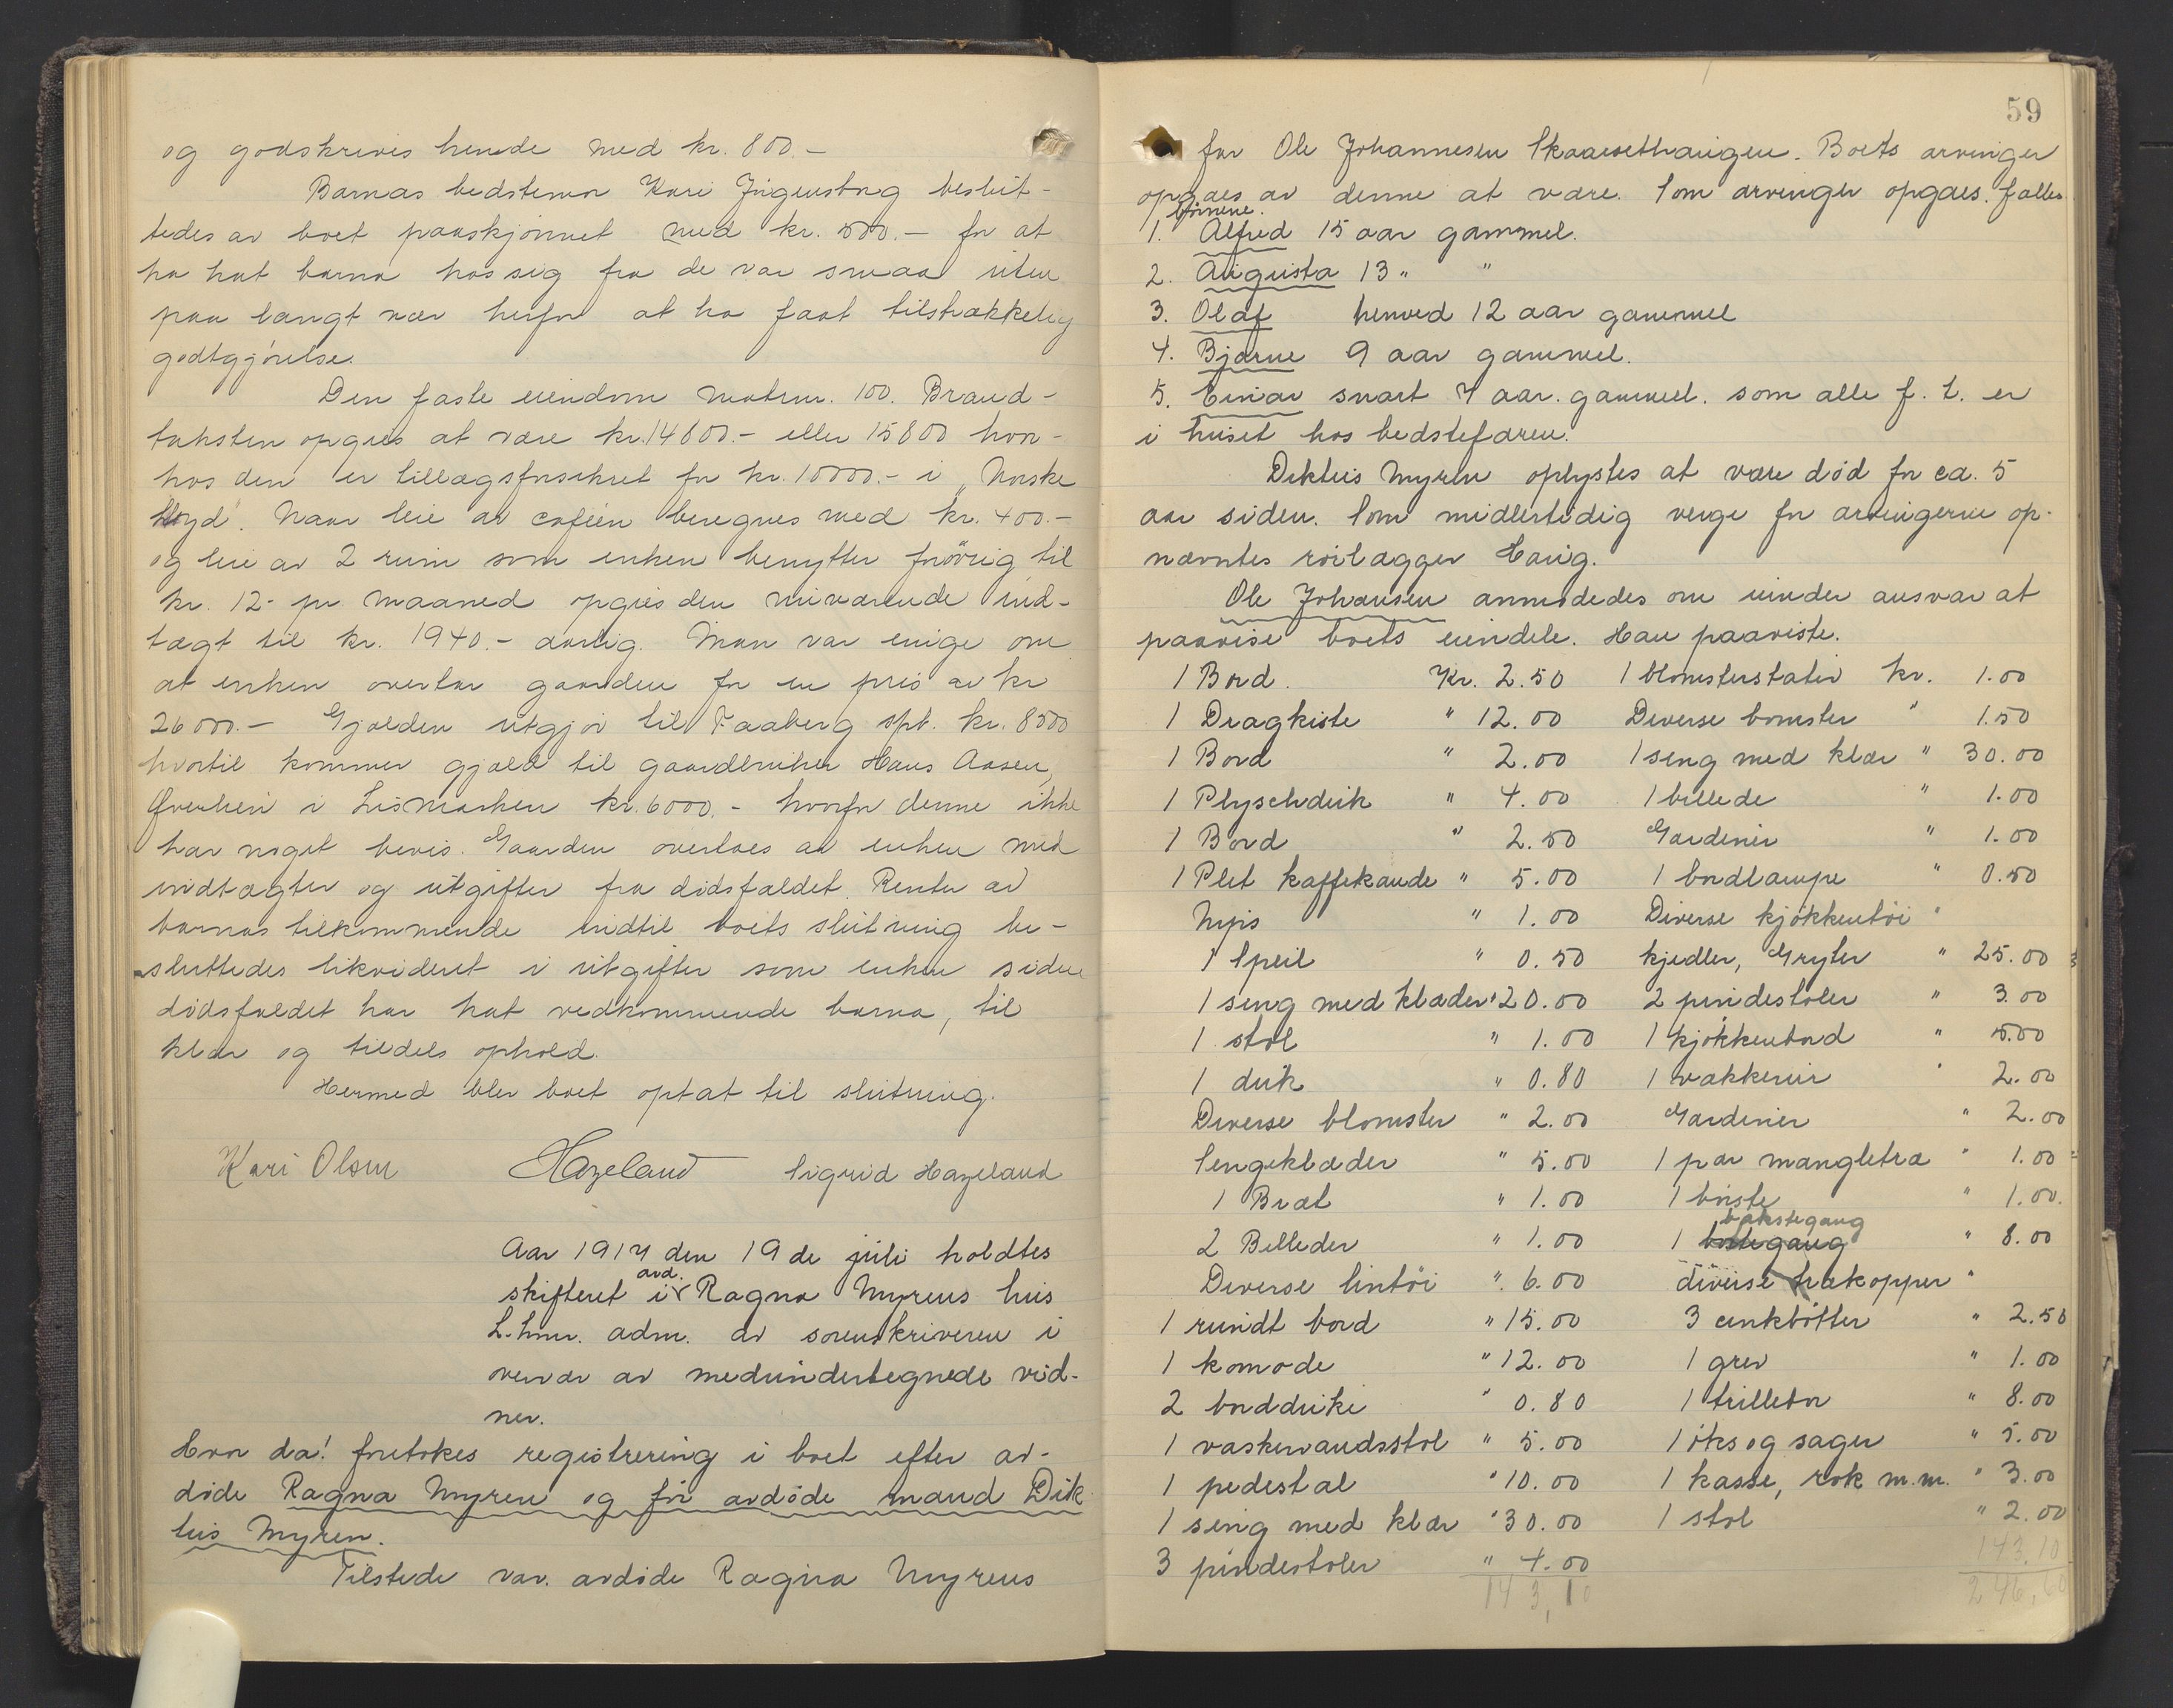 og godskrives hende med kr. 800.-
Barnas bedstemor Kari Jngenstng beslut-
tedes av boet paaskjønnet med kr. 500.- for at
ha hat barna hos sig fra de var smaa uten
paa langt nær herfor at ha faat tilstrækkelig
godtgjørelse.
Den faste eiendom matrnr. 100. Brand-
taksten opgies at være kr. 14800.- eller 15800 hvor-
hos den er tillægsforsikret for kr. 10000.- i „Norske
Lloyd". Naar leie av caféen beregnes med kr. 400.-
og leie av 2 rum som enken benytter forøvrig til
kr. 12- pr. maaned opgies den nuværende ind-
tægt til kr. 1940.- aarlig. Man var enige om
at enken overtar gaarden for en pris av kr
26000.- Gjælden utgjør til Faaberg spb. kr. 8500
hvortil kommer gjæld til gaardbruker Hans Aasen,
Øverlien i Lismarken kr. 6000.- hvorfor denne ikke
har noget bevis. Gaarden overtaes av enken med
indtægter og utgifter fra dødsfaldet. Renter av
barnas tilkommende indtil boets slutning be-
sluttedes likvideret i utgifter som enken siden
dødsfaldet har hat vedkommende barna, til
klær og tildels ophold.
Hermed blev boet optat til slutning.
Kari Olsen Hazeland Sigrid Hazeland
Aar 1917 den 19de juli holdtes
skifteret i avd. Ragna Myrens hus
L.hmr. adm. av sorenskriveren i
overvær av medundertegnede vid-
ner.
Hvor da! foretokes registrering i boet efter av-
døde Ragna Myren og før avdøde mand Dik
tus Myren.
Tilstede var. avdøde Ragna Myrens
59
far Ole Johannesen Skaarsethaugen. Boets arvinger
opgaes av denne at være. Som arvinger opgaes. fælles
børnene.
1. Alfred 15 aar gammel.
2. Augusta 13 " "
3. Olaf henved 12 aar gammel
4. Bjarne 9 aar gammel.
5. Einar snart 7 aar. gammel. som alle f. t. er
i huset hos bedstefaren.
Diktus Myren oplystes at være død for ca. 5
aar siden. Som midlertidig verge for arvingerne op-
nævntes rørlægger Haug.
Ole Johansen anmodedes om under ansvar at
paavise boets eiendele. Han paaviste.
1 Bord. Kr. 2.50 1 blomsterstativ kr. 1.00
1 Dragkiste " 12.00 Diverse bomster " 1.50
1 Bord " 2.00 1 seng med klær " 30.00
1 Plyschduk " 4.00 1 billede " 1.00
1 Bord " 2.50 Gardenier " 1.00
1 Plet kaffekande " 5.00 1 bordlampe " 0.50
Nips " 1.00 Diverse kjøkkentøi "
1 Speil " 0.50 kjedler, Gryter " 25.00
1 seng med klæder " 20.00 2 pindestoler " 3.00
1 stol " 1.00 1 kjøkkenbord " 5.00
1 duk " 0.80 1 vækkerur " 2.00
Diverse blomster " 2.00 Gardiner " 2.00
Sengeklæder " 5.00 1 par mangletræ " 1.00
1 Bræt " 1.00 1 børste " 1.00.
2 Billeder " 1.00 1 bakstegang " 8.00
Diverse lintøi " 6.00 diverse trækopper "
1 rundt bord " 15.00 3 cinkbøtter " 2.50
1 komode " 12.00 1 grev " 1.00
2 bordduke " 0.80 1 trillebor " 8.00
1 vaskevandsstol " 5.00 1 øks og sager " 5.00
1 pedestal " 10.00 1 kasse, rok m.m. " 3.00
1 seng med klær " 30.00 1 stol " 2.00
3 pindestoler " 4.00 143.10
143,10 246,60